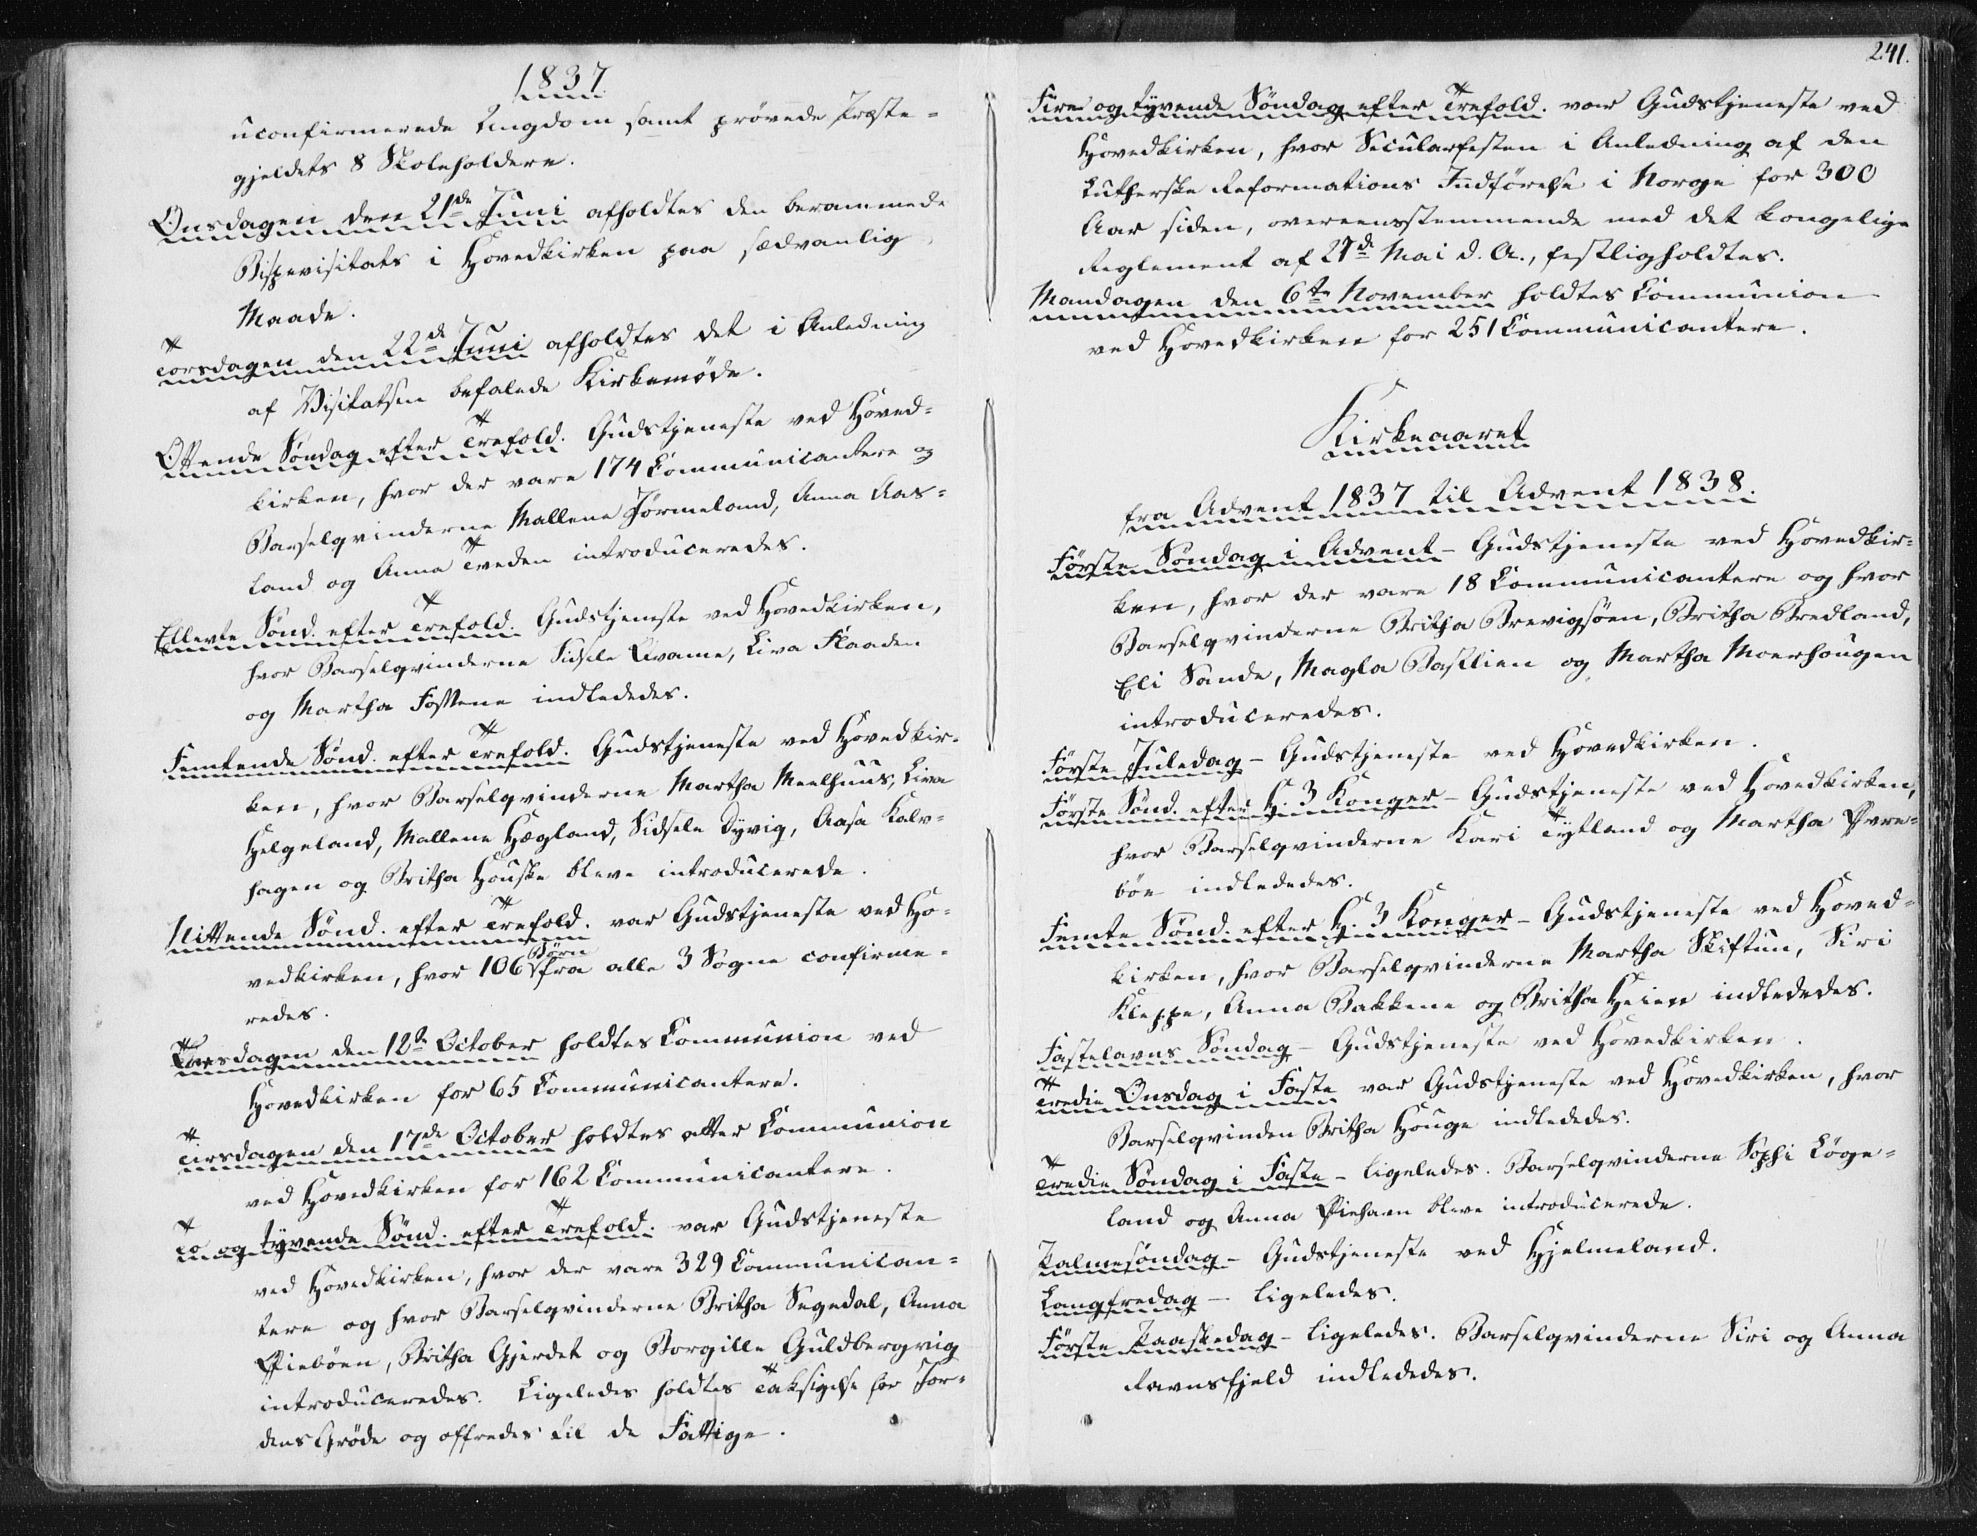 1837.
uconfirmerede Ungdom samt prøvede Præste=
gjeldets 8 Skoleholdere.
Onsdagen den 21de Juni afholdtes den berammede
Bispevisitats i Hovedkirken paa sædvanlig
Maade.
Torsdagen den 22de Juni afholdtes det i Anledning
af Visitatsen befalede Kirkemøde.
Ottende Søndag efter Trefold. Gudstjeneste ved Hoved=
kirken, hvor der vare 174 Communicantere og
Barselqvinderne Mallene Jørmeland, Anna Aas=
land og Anna Tveden introduceredes.
Ellevte Sønd. efter Trefold. Gudstjeneste ved Hovedkirken,
hvor Barselqvinderne Sidsele Qvame, Liva Flaaden
og Martha Fossene indlededes.
Femtende Sønd. efter Trefold. Gudstjeneste ved Hovedkir=
ken, hvor Barselqvinderne Martha Meelhuus, Liva
Helgeland, Mallene Hægland, Sidsele Dyvig, Aasa Kalv=
hagen og Britha Houske bleve introducerede.
Nittende Sønd. efter Trefold. var Gudstjeneste ved Ho=
vedkirken, hvor 106 Børn fra alle 3 Sogne confirme=
redes.
Torsdagen den 12te October holdtes Communion ved
Hovedkirken for 65 Communicantere.
Tirsdagen den 17de October holdtes atter Communion
ved Hovedkirken for 162 Communicantere.
To og tyvende Sønd. efter Trefold. var Gudstjeneste
ved Hovedkirken, hvor der vare 329 Communican=
tere og hvor Barselqvinderne Britha Segedal, Anna
Piebøen, Britha Gjerdet og Borgille Guldbergvig
introduceredes. Ligeledes holdtes Taksigelse for Jor=
dens Grøde og offredes til de Fattige.
241.
Fire og tyvende Søndag efter Trefold. var Gudstjeneste ved
Hovedkirken, hvor Secularfesten i Anledning af den
Lutherske Reformations Indførelse i Norge for 300
Aar siden, overeensstemmende med det kongelige
Reglement af 27de Mai d. A., festligholdtes.
Mandagen den 6te November holdtes Communion
ved Hovedkirken for 251 Communicantere.
Kirkeaaret
fra Advent 1837 til Advent 1838.
Første Søndag i Advent - Gudstjeneste ved Hovedkir=
ken, hvor der vare 18 Communicantere og hvor
Barselqvinderne Britha Brevigsøen, Britha Bredland,
Eli Sande, Magla Baklien og Martha Moerhougen
introduceredes.
Første Juledag - Gudstjeneste ved Hovedkirken.
Første Sønd. efter H. 3 Konger - Gudstjeneste ved Hovedkirken,
hvor Barselqvinderne Kari Tytland og Martha Pre=
bøe indlededes.
Femte Sønd. efter H. 3 Konger - Gudstjeneste ved Hoved=
kirken, hvor Barselqvinderne Martha Skiftun, Siri
Kleppe, Anna Bakkene og Britha Heien indlededes.
Fastelavns Søndag - Gudstjeneste ved Hovedkirken.
Tredie Onsdag i Faste var Gudstjeneste ved Hovedkirken, hvor
Barselqvinden Britha Houge indlededes.
Tredie Søndag i Faste - ligeledes. Barselqvinderne Sophi Løge=
land og Anna Piehaen bleve introducerede.
Palmesøndag - Gudstjeneste ved Hjelmeland.
Langfredag - ligeledes.
Første Paaskedag - ligeledes. Barselqvinderne Siri og Anna
Ravnsfjeld indlededes.